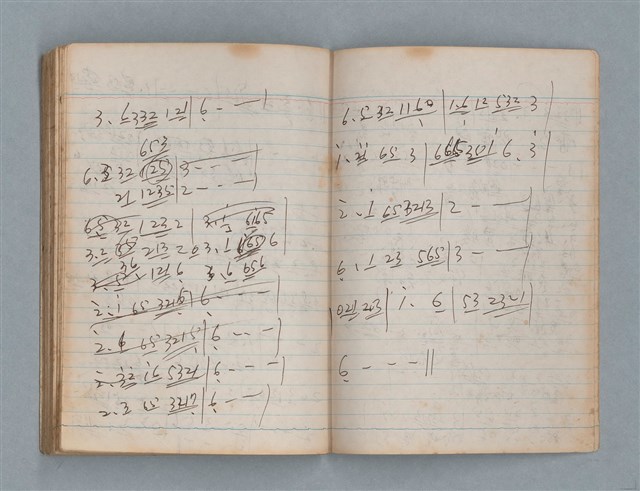 3. 6332 121 | 6 - - - |
653
6. 5 32 125 | 3 - - - |
21 1235 | 2 - - - |
65 32 123 2 | 3. 1 6165
3.2 65 213 2 0 3. 1 665 6
36
121 6 3. 6 656
2. 1 65 3215 | 6 - - - |
2. 6 65 3215 | 6 - - - |
2. 32 16 5321 | 6 - - - |
2. 3217 | 6 - - - |
6. 5 32 1160 | 1.6 12 532 3
1. 65 3 | 6. 3 |
2. 1 653213 | 2 - - - |
6. 1 23 565 | 3 - - - |
021 203 | 1. 6 | 53 2321 |
6 - - - ||